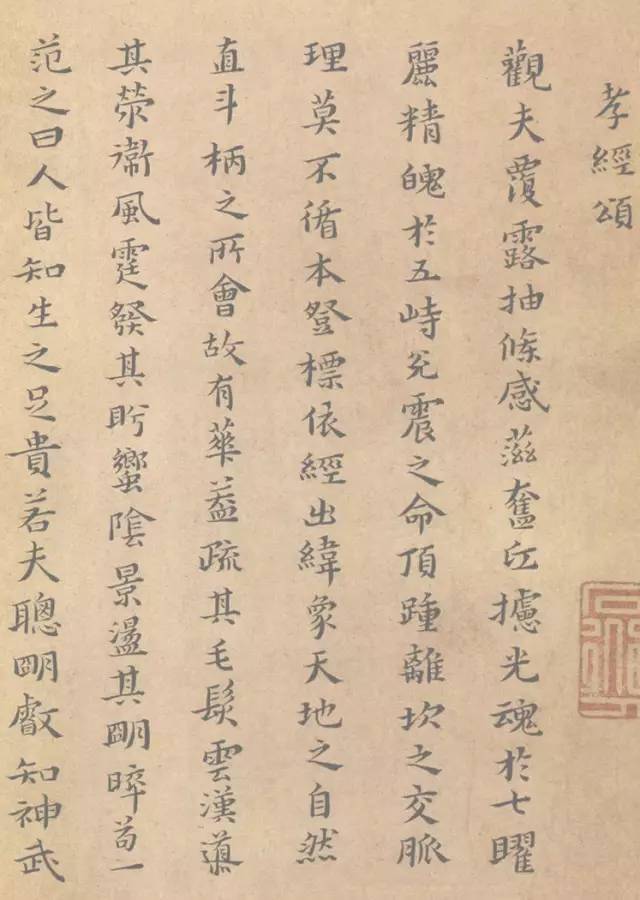 孝經頌
觀夫覆露抽條感蕩奮丘攄光魂於七曜
麗精魄於五峙兌震之命頂踵離坎之交脈
理莫不循本登標依經出緯象天地之自然
直斗柄之所會故有華蓋疏其毛髮雲漢導
其荥衞風霆發其肸蠁陰景盪其明晬苟一
范之曰人皆知生之足貴若夫聰明叡知神武